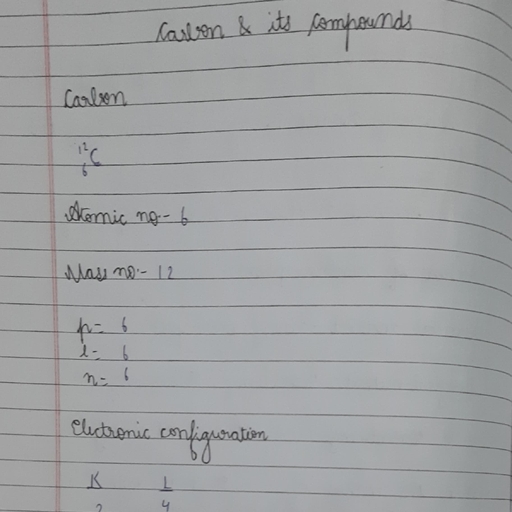 Carbon & its Compounds
Carbon
12
6 C
Atomic no- 6
Mass no:- 12
p= 6
e= 6
n= 6
Electronic configuration
K L
2 4